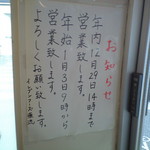 お知らせ
年内12月29日14時まで
営業致します。
年始1月3日9時から
営業致します。
よろしくお願い致します。